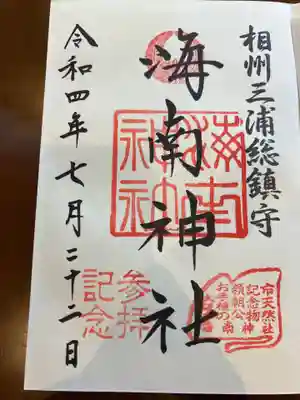 相州三浦総鎮守
海南神社
令和四年七月二十二日
海南神社
参拝
記念